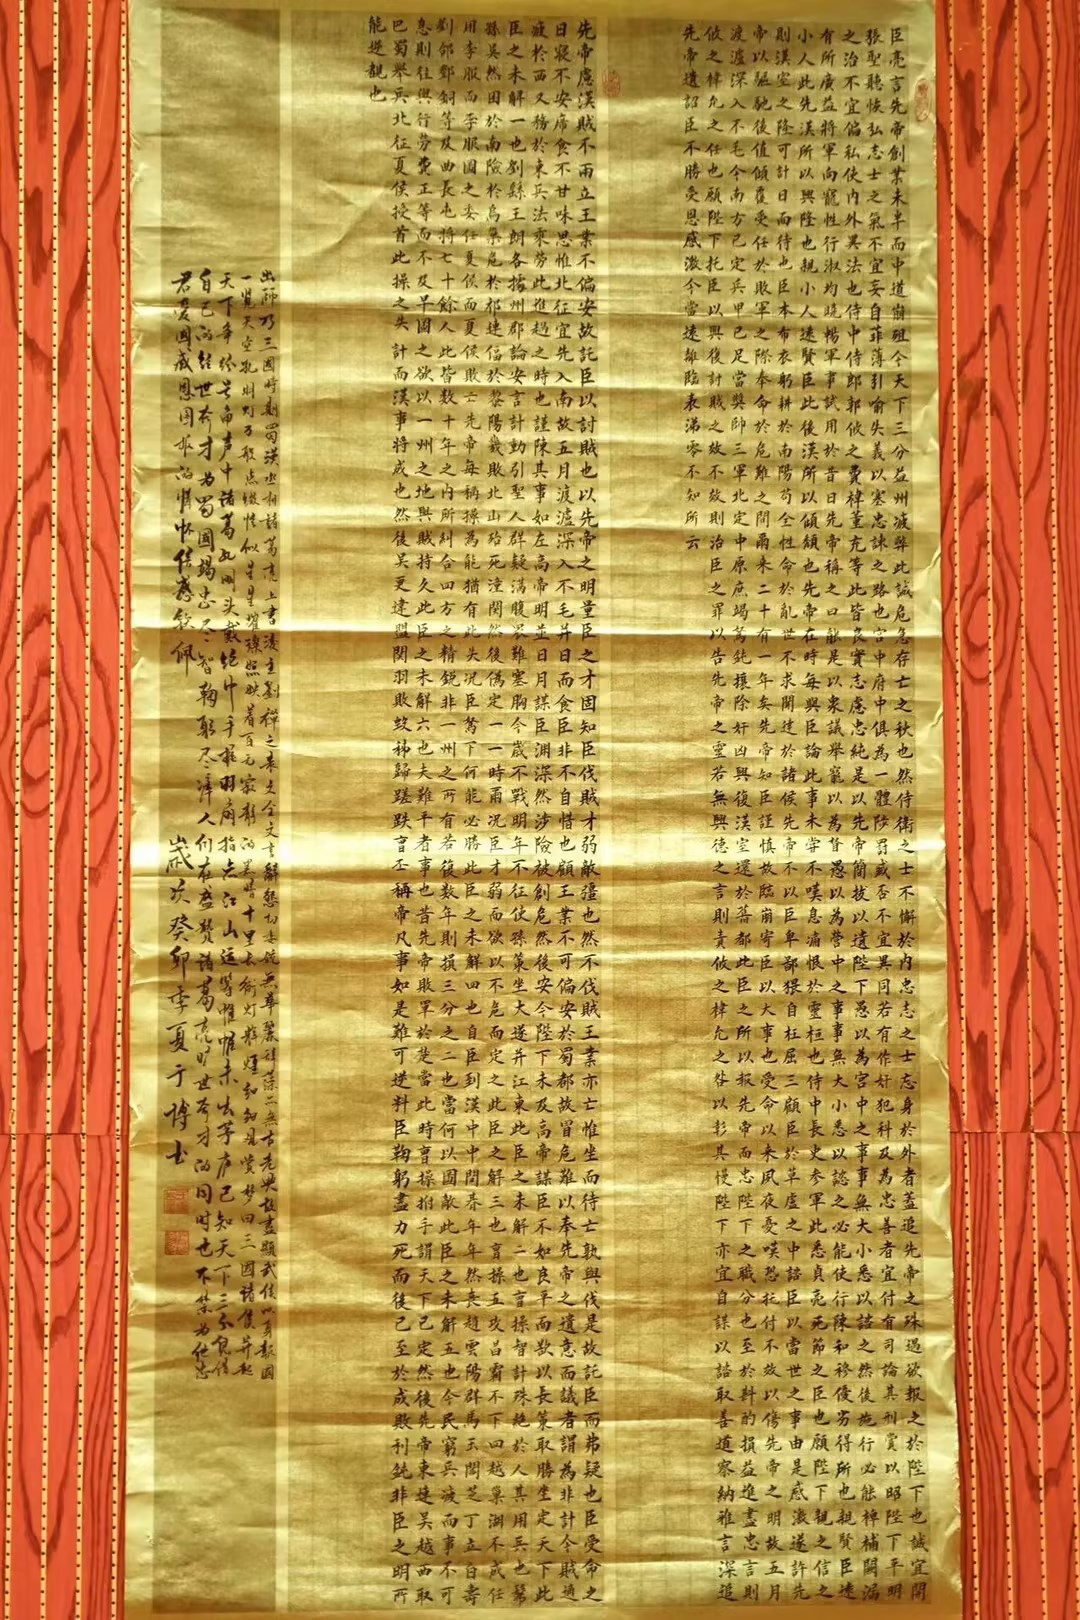 臣亮言先帝創業未半而中道崩殂今天下三分益州疲弊此誠危急存亡之秋也然侍衛之士不懈於內忠志之士忘身於外者蓋追先帝之殊遇欲報之於陛下也誠宜開
張聖聽恢弘志士之氣不宜妄自菲薄引喻失義以塞忠諫之路也宮中府中俱為一體陟罰臧否不宜異同若有作奸犯科及為忠善者宜付有司論其刑賞以昭陛下平明
之治不宜偏私使內外異法也侍中侍郎郭攸之費禕董允等此皆良實志慮忠純是以先帝簡拔以遺陛下愚以為宮中之事事無大小悉以諮之然後施行必能裨補闕漏
有所廣益將軍向寵性行淑均曉暢軍事試用於昔日先帝稱之曰能是以眾議舉寵以為督愚以為營中之事事無大小悉以諮之必能使行陳和穆優劣得所也親賢臣遠
小人此先漢所以興隆也親小人遠賢臣此後漢所以傾頹也先帝在時每與臣論此事未嘗不嘆息痛恨於靈桓也侍中長史參軍此悉貞亮死節之臣也願陛下親之信之
則漢室之隆可計日而待也臣本布衣躬耕於南陽苟全性命於亂世不求聞達於諸侯先帝不以臣卑鄙猥自枉屈三顧臣於草廬之中諮臣以當世之事由是感激遂許先
帝以驅馳後值傾覆受任於敗軍之際奉命於危難之間爾來二十有一年矣先帝知臣謹慎故臨崩寄臣以大事也受命以來夙夜憂嘆恐托付不效以傷先帝之明故五月
渡瀘深入不毛今南方已定兵甲已足當獎帥三軍北定中原庶竭駑鈍攘除奸凶興復漢室還於舊都此臣之所以報先帝而忠陛下之職分也至於斟酌損益進盡忠言則
攸之禕允之任也願陛下托臣以興復討賊之效不效則治臣之罪以告先帝之靈若無興德之言則責攸之禕允之咎以彰其慢陛下亦宜自謀以諮取善道察納雅言深追
先帝遺詔臣不勝受恩感激今當遠離臨表涕零不知所云
先帝慮漢賊不兩立王業不偏安故託臣以討賊也以先帝之明量臣之才固知臣伐賊才弱敵彊也然不伐賊王業亦亡惟坐而待亡孰與伐是故託臣而弗疑也臣受命之
日寢不安席食不甘味思惟北征宜先入南故五月渡瀘深入不毛并日而食臣非不自惜也顧王業不可偏安於蜀都故冒危難以奉先帝之遺意而議者謂為非計今賊適
疲於西又務於東兵法乘勞此進趨之時也謹陳其事如左高帝明並日月謀臣淵深然涉險被創危然後安今陛下未及高帝謀臣不如良平而欲以長策取勝坐定天下此
臣之未解一也劉繇王朗各據州郡論安言計動引聖人群疑滿腹眾難塞胸今歲不戰明年不征使孫策坐大遂并江東此臣之未解二也曹操智計殊絕於人其用兵也髣
孫吳然困於南險於烏巢危於祁連偪於黎陽幾敗北山殆死潼關然後偽定一一時爾況臣才弱而欲以不危而定之此臣之解三也曹操五攻昌霸不下四越巢湖不成任
用李服而李服圖之委任夏侯而夏侯敗亡先帝每稱操為能猶有此失況臣駑下何能必勝此臣之未解四也自臣到漢中中間朞年年然喪趙雲陽群馬玉閻芝丁立白壽
劉郃鄧銅等及曲長屯將七十餘人此皆數十年之內所糾合四方之精銳非一州之所有若復數年則損三分之二也當何以圖敵此臣之未解五也今民窮兵疲而事不可
息則住與行勞費正等而不及早圖之欲以一州之地與賊持久此臣之未解六也夫難平者事也昔先帝敗軍於楚當此時曹操拊手謂天下已定然後先帝東連吳越西取
巴蜀舉兵北征夏侯授首此操之失計而漢事將成也然後吳更違盟關羽敗歿秭歸蹉跌曹丕稱帝凡事如是難可逆料臣鞠躬盡力死而後已至於成敗利鈍非臣之明所
能逆覩也
出師乃三國時期蜀漢丞相諸葛亮上書後主劉禪之表文全文言辭懇切委婉無華麗辭藻二無古老典故盡顯武侯以身報國
天下爭紛號角聲中諸葛孔明頭戴綸巾手搖羽扇指點江山運籌帷幄未出茅廬已知天下三分
自己的經世奇才為蜀國竭忠盡智鞠躬盡瘁人們在盛贊諸葛亮曠世奇才的同時也不禁為他忠
君愛國感恩圖報的情懷
歲次癸卯季夏于博士